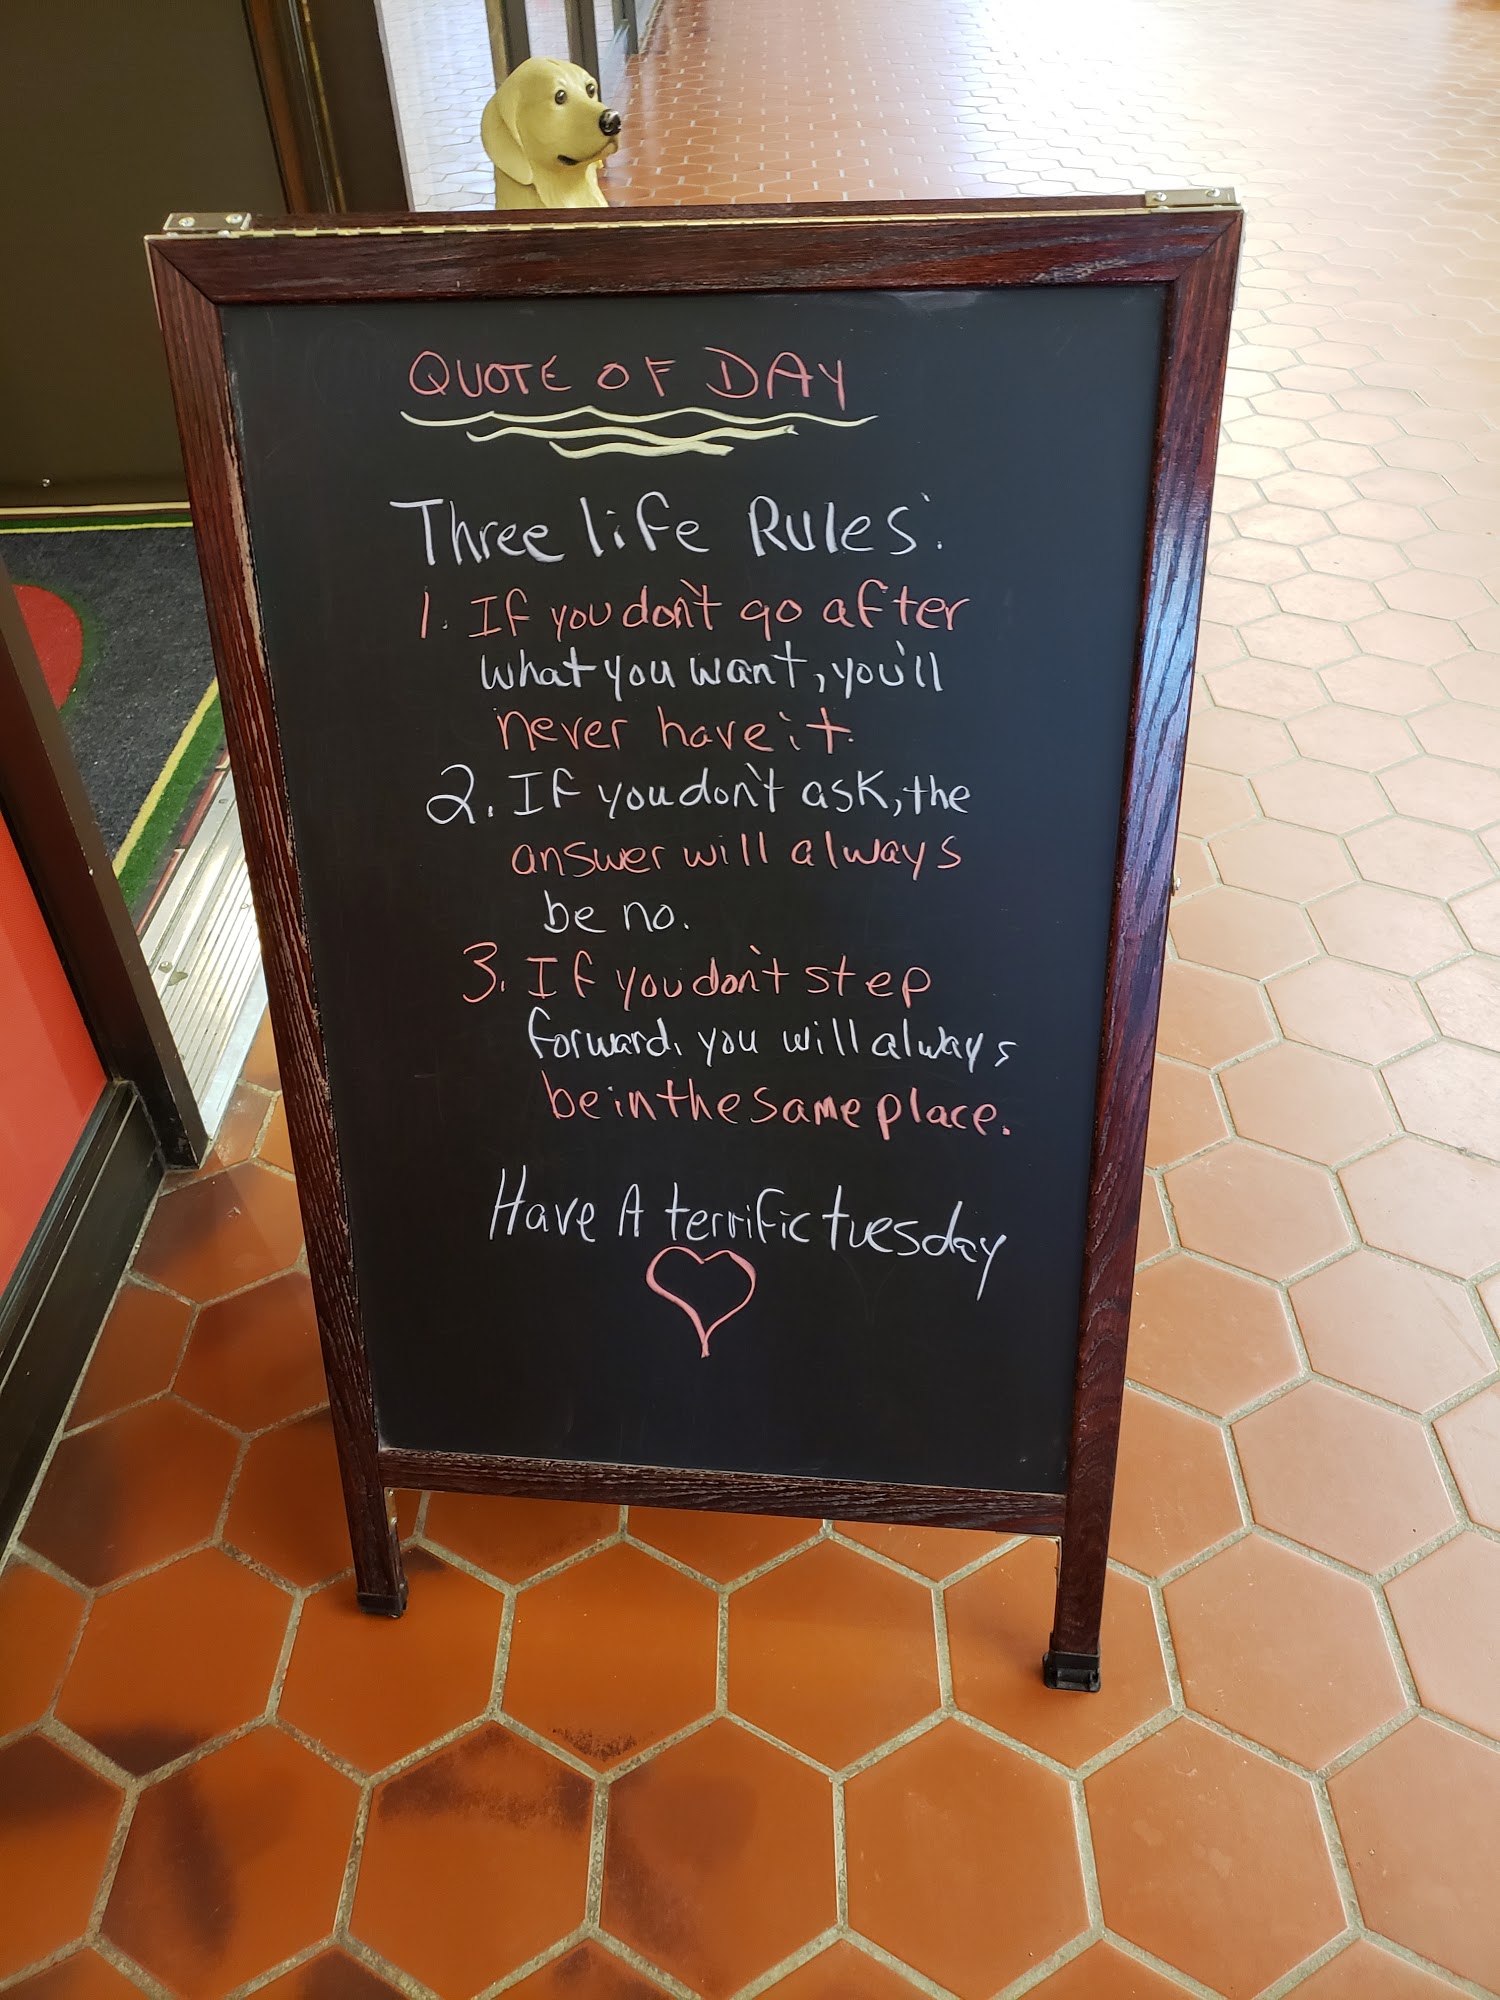 QUOTE OF DAY
Three life Rules:
1. If you don't go after
what you want, you'll
never have it.
2. If you don't ask, the
answer will always
be no.
3. If you don't step
forward, you will always
be in the same place.
Have A terrific tuesday